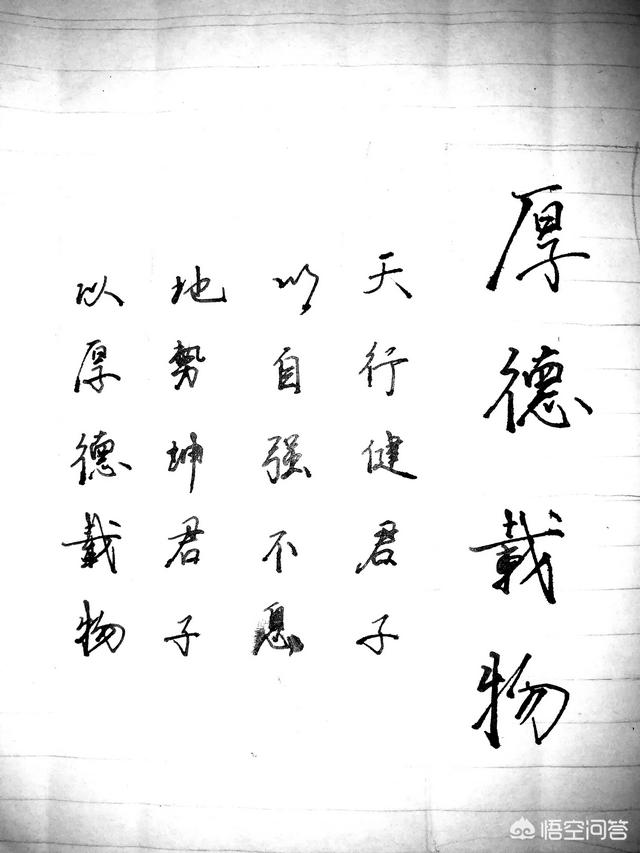 厚德载物
天行健君子
以自强不息
地势坤君子
以厚德载物
悟空问答